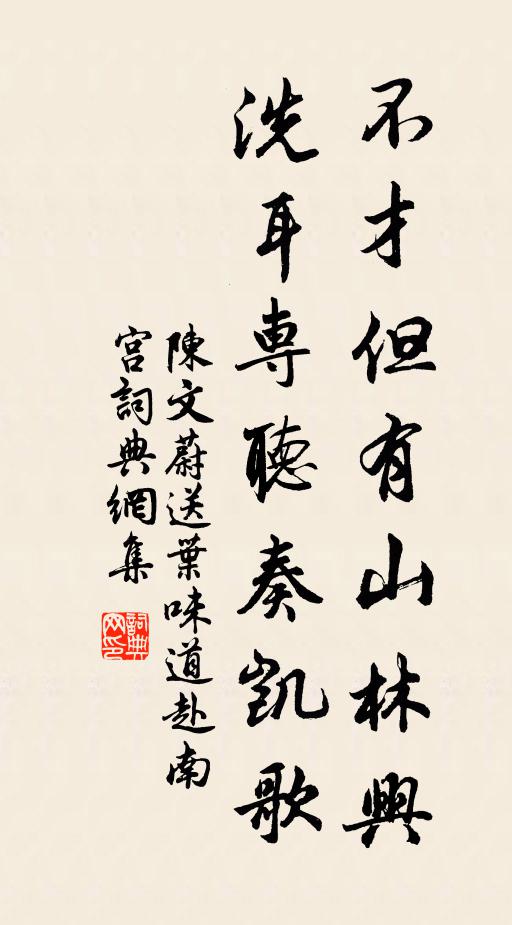 不才但有山林興
洗耳専聽奏凱歌
陳文蔚送葉味道赴南
宫詞典網集
詞典网印